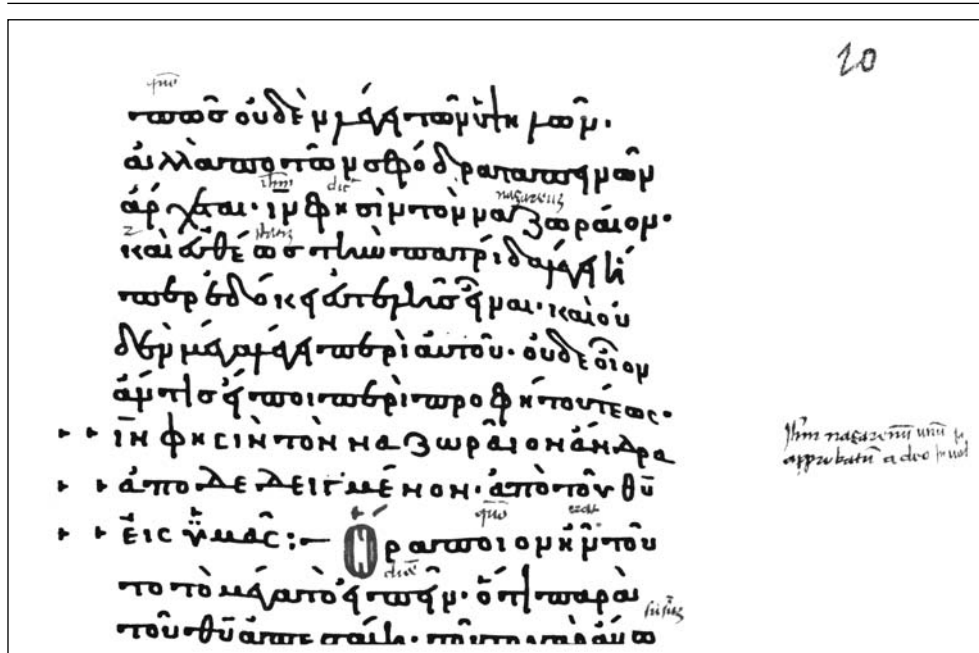 20
πῶς οὐδὲν λέγει τῶν ὑψηλῶν.
ἀλλ' ἀπὸ τῶν σφόδρα ταπεινῶν
ἄρχεται. ἰν φησὶν τὸν ναζωραῖον.
καὶ εὐθέως τὴν πατρίδα λέγει ἥ
περ ἐδόκει εὐτελὴς εἶναι. καὶ οὐ
δὲν μέγα λέγει περὶ αὐτοῦ. οὐδε οἷον
ἄν τις εἴποι περὶ προφήτου τέως.
ιν φησὶν τὸν ναζωραῖον ἄνδρα
ἀποδεδειγμένον. ἀπὸ τοῦ θυ
εἰς ὑμᾶς: Ὅρα ποῖον ἦν τοῦ
το τὸ μέγα τὸ εἰπεῖν. ὅτι παρὰ
τοῦ θυ ἀπεστάλη. τοῦτο γὰρ ἄνω
Ihm nazarenu uiru
approbatu a deo